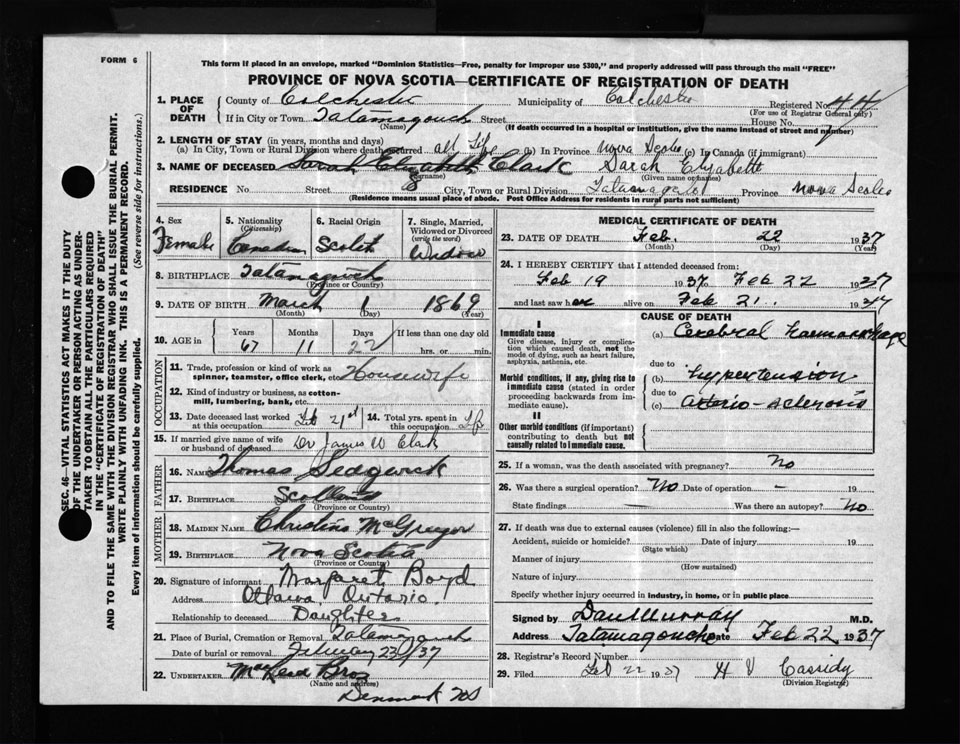 FORM 6
This form if placed in an envelope, marked "Dominion Statistics—Free, penalty for improper use $300," and properly addressed will pass through the mail "FREE"
PROVINCE OF NOVA SCOTIA—CERTIFICATE OF REGISTRATION OF DEATH
1. PLACE OF DEATH County of Colchester Municipality of Colchester Registered No. 44
(For use of Registrar General only)
If in City or Town Tatamagouch Street House No.
(Name) (If death occurred in a hospital or institution, give the name instead of street and number)
2. LENGTH OF STAY (in years, months and days)
(a) In City, Town or Rural Division where death occurred all Life (b) In Province Nova Scotia (c) In Canada (if immigrant)
3. NAME OF DECEASED Sarah Elizabeth Clark Sarah Elizabeth
(Surname) (Given name or names)
RESIDENCE No. Street City, Town or Rural Division Province Nova Scotia
(Residence means usual place of abode. Post Office Address for residents in rural parts not sufficient)
4. Sex Female
5. Nationality (Citizenship) Canadian
6. Racial Origin Scotch
7. Single, Married, Widowed or Divorced (write the word) Widow
8. BIRTHPLACE Tatamagouch
(Province or Country)
9. DATE OF BIRTH March 1 1869
(Month) (Day) (Year)
10. AGE in Years 67 Months 11 Days 22 If less than one day old hrs. or min.
OCCUPATION
11. Trade, profession or kind of work as spinner, teamster, office clerk, etc. Housewife
12. Kind of industry or business, as cotton-mill, lumbering, bank, etc.
13. Date deceased last worked at this occupation Feb 21st
14. Total yrs. spent in this occupation Life
15. If married give name of wife or husband of deceased Dr James W Clark
FATHER
16. Name Thomas Sedgwick
17. Birthplace Scotland
(Province or Country)
MOTHER
18. Maiden Name Christina McGregor
19. Birthplace Nova Scotia
(Province or Country)
20. Signature of informant Margaret Boyd
Address Ottawa, Ontario.
Relationship to deceased Daughter
21. Place of Burial, Cremation or Removal Tatamagouch
Date of burial or removal February 23/37
22. UNDERTAKER Bros
(Name and address)
Denmark NS
MEDICAL CERTIFICATE OF DEATH
23. DATE OF DEATH Feb. 22 1937
(Month) (Day) (Year)
24. I HEREBY CERTIFY that I attended deceased from:
Feb 19 1937 to Feb 22 1937
and last saw her alive on Feb 21 1937
CAUSE OF DEATH
I
Immediate cause
Give disease, injury or complication which caused death, not the mode of dying, such as heart failure, asphyxia, asthenia, etc.
(a) Cerebral haemorrhage
due to
Morbid conditions, if any, giving rise to immediate cause (stated in order proceeding backwards from immediate cause).
(b) hypertension
due to
(c) arterio-sclerosis
II
Other morbid conditions (if important) contributing to death but not causally related to immediate cause.
25. If a woman, was the death associated with pregnancy? No
26. Was there a surgical operation? No Date of operation — 19
State findings — Was there an autopsy? No
27. If death was due to external causes (violence) fill in also the following:—
Accident, suicide or homicide? Date of injury 19
(State which)
Manner of injury
(How sustained)
Nature of injury
Specify whether injury occurred in industry, in home, or in public place
Signed by Dan Murray M.D.
Address Tatamagouche Date Feb 22 1937
28. Registrar's Record Number
29. Filed Feb 22 1937 H V Cassidy
(Division Registrar)
SEC. 46—VITAL STATISTICS ACT MAKES IT THE DUTY
OF THE UNDERTAKER OR PERSON ACTING AS UNDER-
TAKER TO OBTAIN ALL THE PARTICULARS REQUIRED
IN THE "CERTIFICATE OF REGISTRATION OF DEATH"
AND TO FILE THE SAME WITH THE DIVISION REGISTRAR WHO SHALL ISSUE THE BURIAL PERMIT.
WRITE PLAINLY WITH UNFADING INK. THIS IS A PERMANENT RECORD.
Every item of information should be carefully supplied. (See reverse side for instructions.)